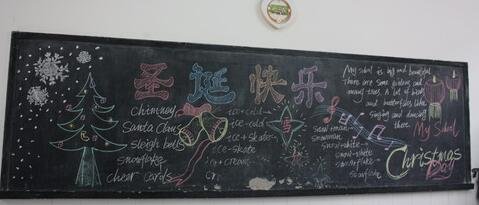 圣诞快乐
Chimney
Santa Claus
sleigh bells
snowflake
cheer cards
ice+cold
ice-cold
ice+skate
ice-skate
snow-white
snow-white
snowflake
snowflake
My school is big and beautiful
There are some and
many trees. A lot of birds
and butterflies like
singing and dancing
there.
My School
Christmas
Day